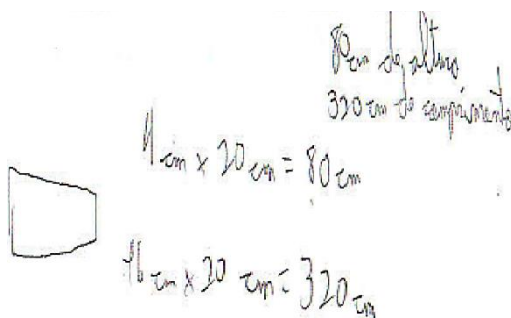 80 cm de altura
320 cm de comprimento
4 cm x 20 cm = 80 cm
16 cm x 20 cm = 320 cm